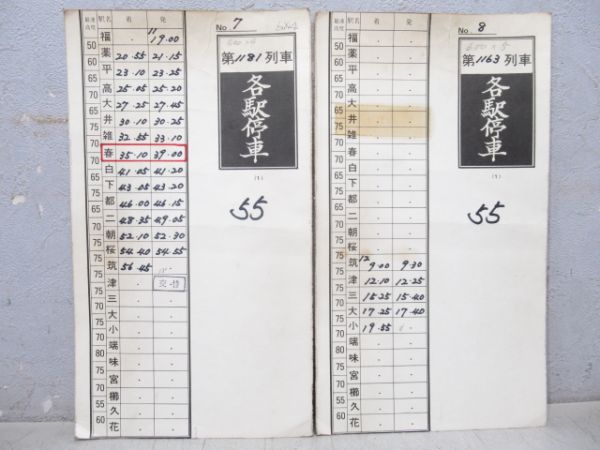 最速
高度
駅名
着
発
No. 7
福 11 19.00
50
薬 20.55 21.15
65
平 23.10 23.25
70
高 25.05 25.20
70
大 27.25 27.45
65
井 30.10 30.25
75
雑 32.55 33.10
70
春 35.10 39.00
75
白 41.05 41.20
70
下 43.05 43.20
65
都 46.00 46.15
75
二 48.35 49.05
75
朝 52.10 52.30
75
桜 54.40 54.55
75
筑 56.45
75
津 交替
75
三
75
大
70
小
70
端
80
味
70
宮
70
櫛
55
久
60
花
第1181列車
各駅停車
(1)
55
駅名
着
発
No. 8
600×5
福
50
薬
65
平
70
高
70
大
65
井
75
雑
70
春
75
白
70
下
65
都
75
二
75
朝
75
桜
75
筑 12 9.00 9.30
75
津 12.10 12.25
75
三 15.25 15.40
75
大 17.25 17.40
70
小 19.55
70
端
80
味
70
宮
70
櫛
55
久
60
花
第1163列車
各駅停車
(1)
55